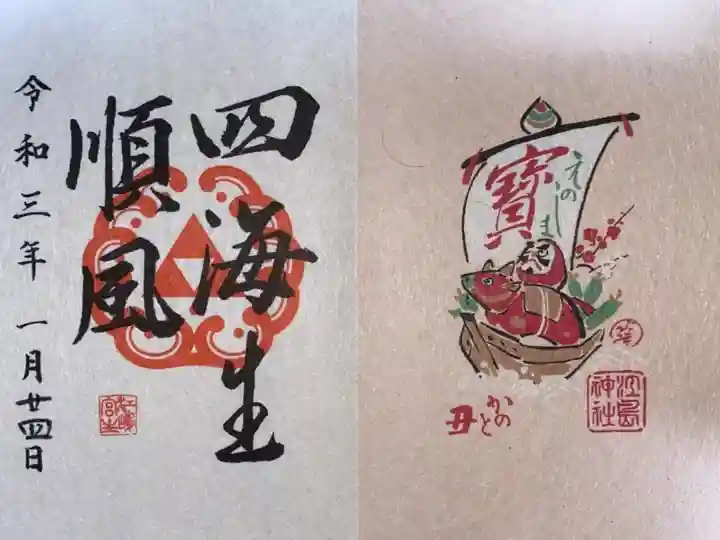 四海生
順風
令和三年 一月廿四日
寶
えのしま
かのと
丑
江島
神社